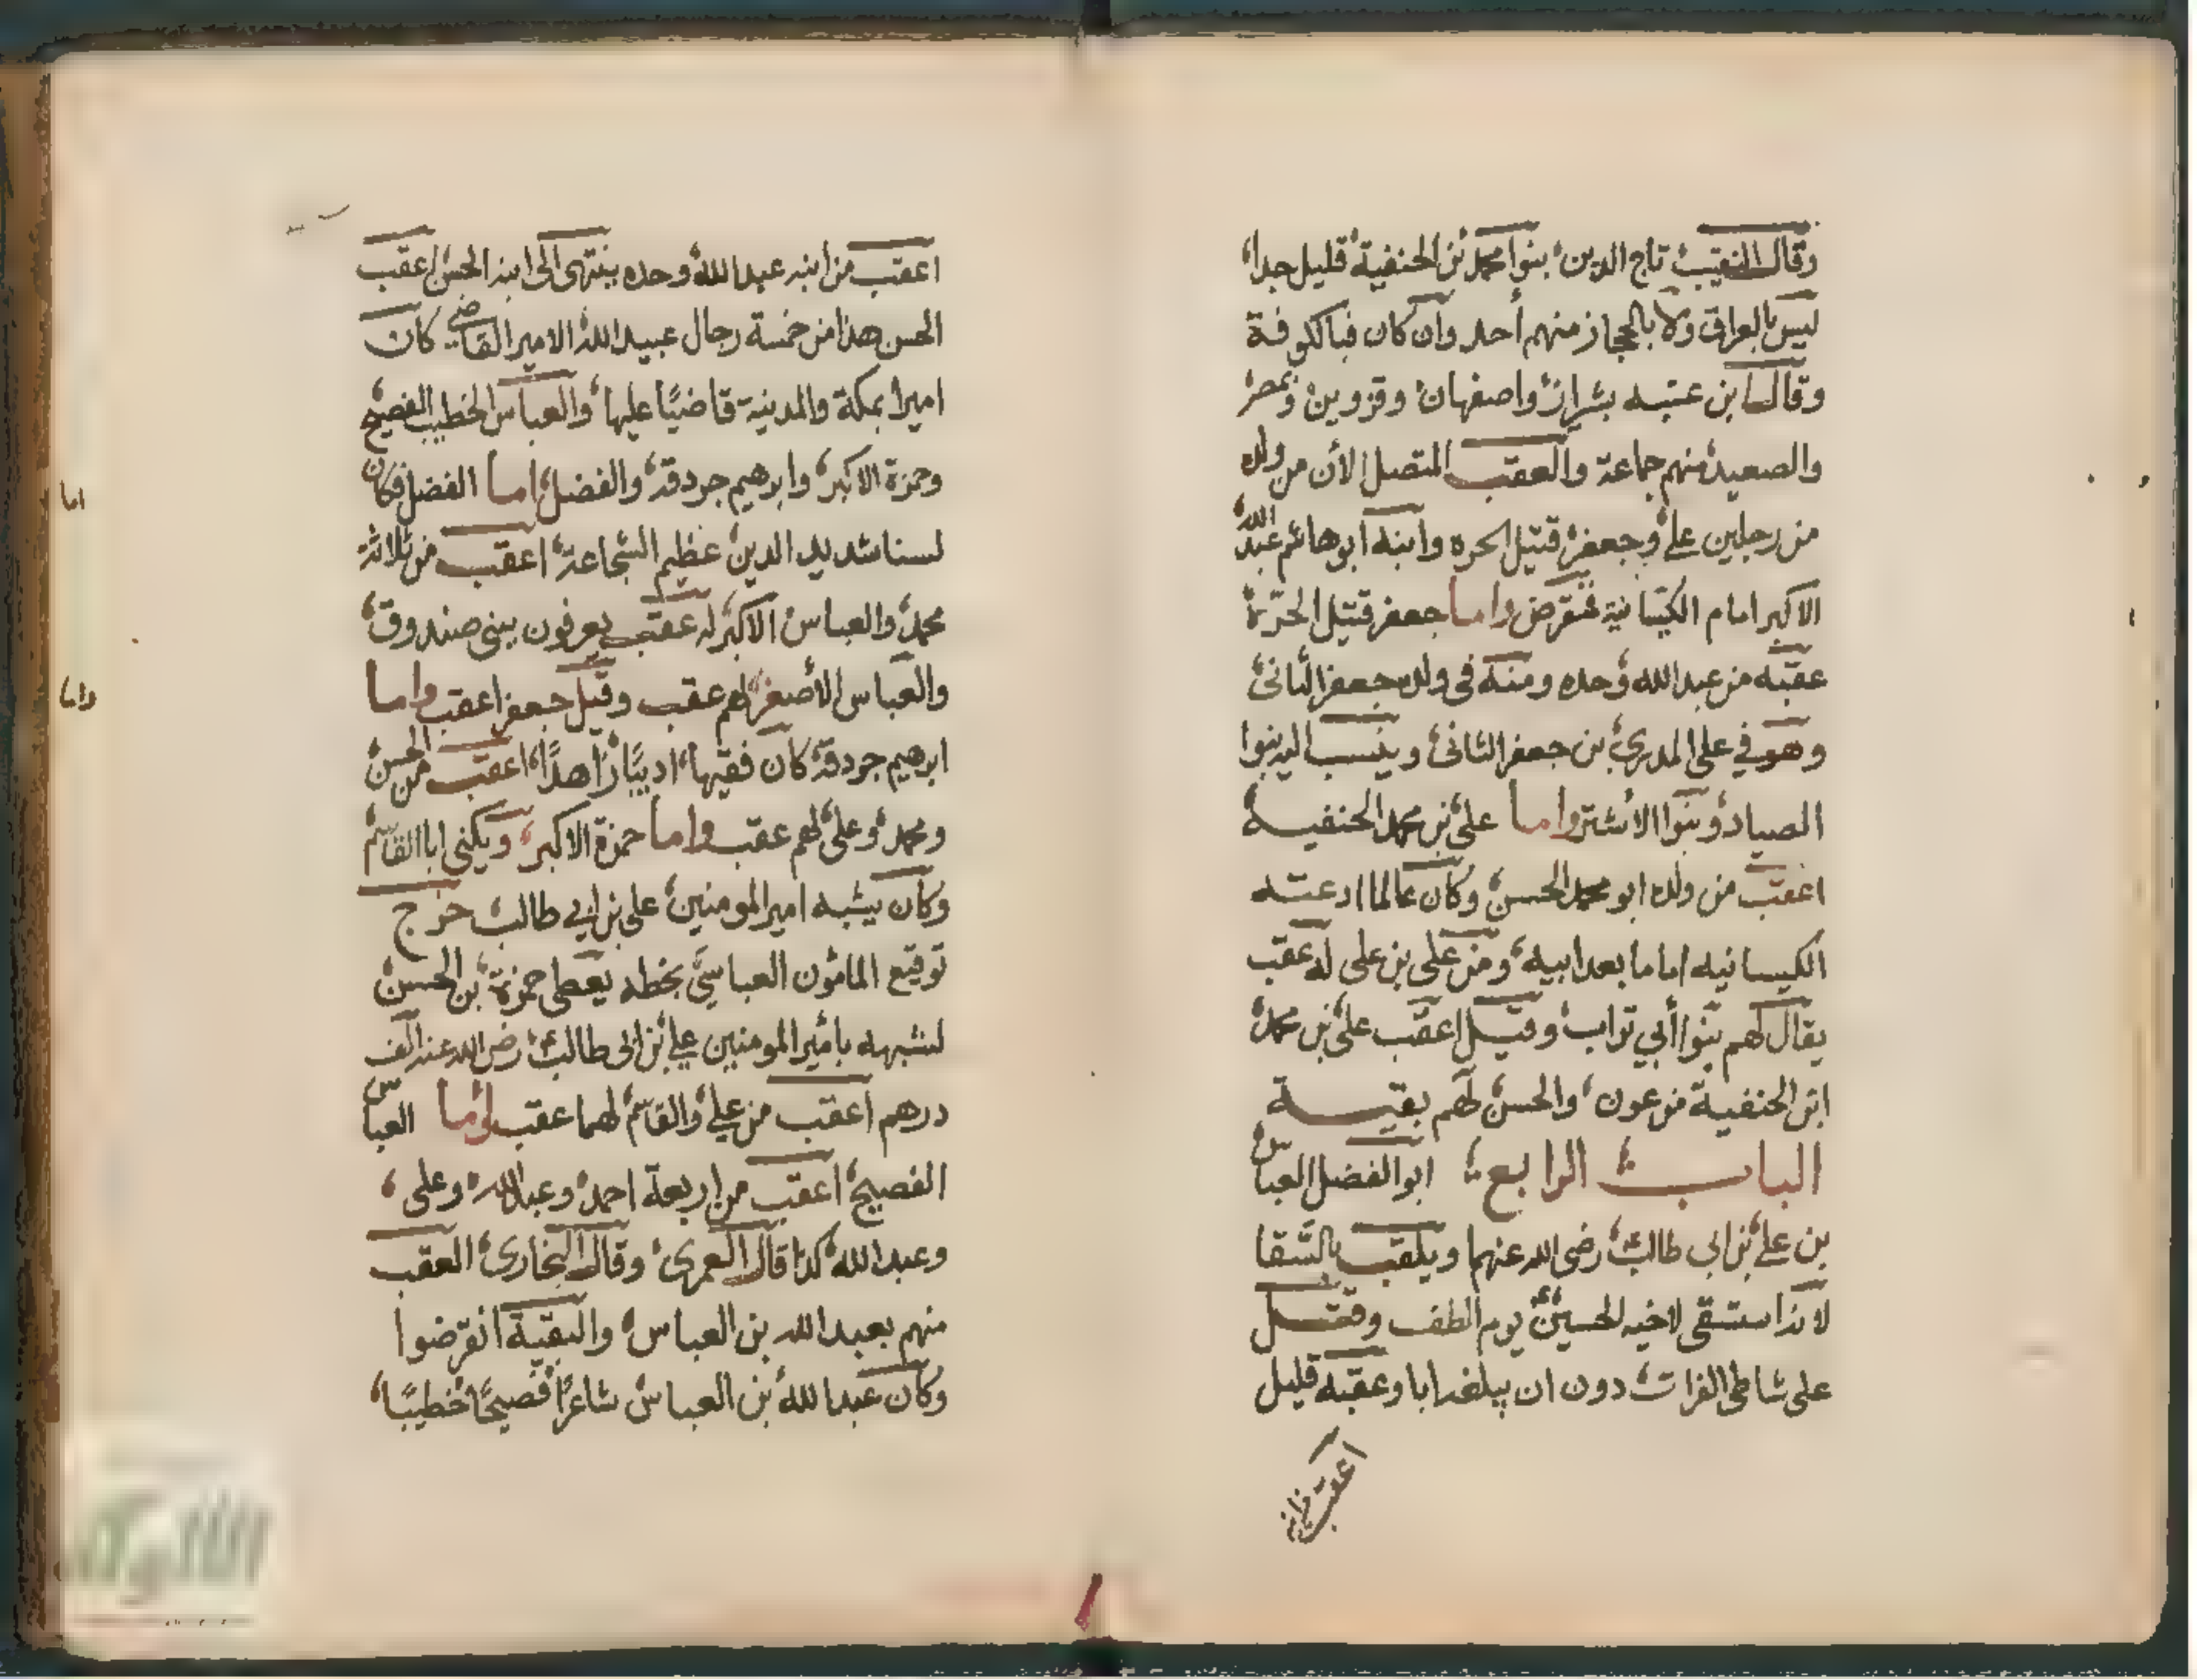 وقال النقيب تاج الدين بنوا محمد بن الحنفية قليل جدا
ليس بالعراق ولا بالحجاز منهم أحد وان كان فبالكوفة
وقال ابن عتبه بشراز واصفهان وقزوين وبمصر
والصعيد منهم جماعة والعقب المتصل الأن من ولد
من رجلين على وجعفر قتيل الحره وابنه ابو هاشم عبد الله
الاكبر امام الكيسانية فنقرض واما جعفر قتيل الحرة
عقبه من عبد الله وحده ومنه فى ولد جعفر الثانى
وهو في على المدرى بن جعفر الثانى وينسب اليه بنوا
الصياد وبنوا الأشتر واما على بن محمد الحنفيه
اعقب من ولده ابو محمد الحسن وكان عالما ادعته
الكيسانيه اماما بعد ابيه ومن على بن على له عقب
يقال لهم بنوا أبي تراب وقيل اعقب على بن محمد
ابن الحنفية من عون والحسن لهم بقية
الباب الرابع ابو الفضل العباس
بن على بن ابى طالب رضى الله عنهما ويلقب بالسقا
لانه استقى لاخيه الحسين يوم الطف وقتل
على شاطى الفرات دون ان يبلغه ابا وعقبه قليل
اعقب من ابنه
اعقب من ابنه عبد الله وحده ينتهى الى ابنه الحسن اعقب
الحسن هذا من خمسة رجال عبيد الله الامير القاضي كان
اميرا بمكة والمدينة قاضيًا عليها والعباس الخطيب الفصيح
وحمزة الاكبر وابرهيم جردقة والفضل اما الفضل فكان
لسنا شديد الدين عظيم الشجاعة اعقب من ثلاثة
محمد والعباس الاكبر له عقب يعرفون ببنى صندوق
والعباس الأصغر لهم عقب وقيل جعفر اعقب واما
ابرهيم جردقة كان فقيها اديبًا زاهدًا اعقب من الحسن
ومحمد وعلى لهم عقب واما حمزة الاكبر ويكنى ابا القاسم
وكان يشبه امير المومنين على بن ابي طالب خرج
توقيع المامون العباسي بخطه يعطى حمزة بن الحسن
لشبهه بأمير المومنين علي بن ابى طالب رضى الله عنه الف
درهم اعقب من علي والقاسم لهما عقب واما العباس
الفصيح اعقب من اربعة احمد وعبد الله وعلى
وعبد الله كذا قال العمرى وقال البخارى العقب
منهم بعبد الله بن العباس والبقية انقرضوا
وكان عبد الله بن العباس شاعرًا فصيحًا خطيبًا
اما
واما
الألوكة